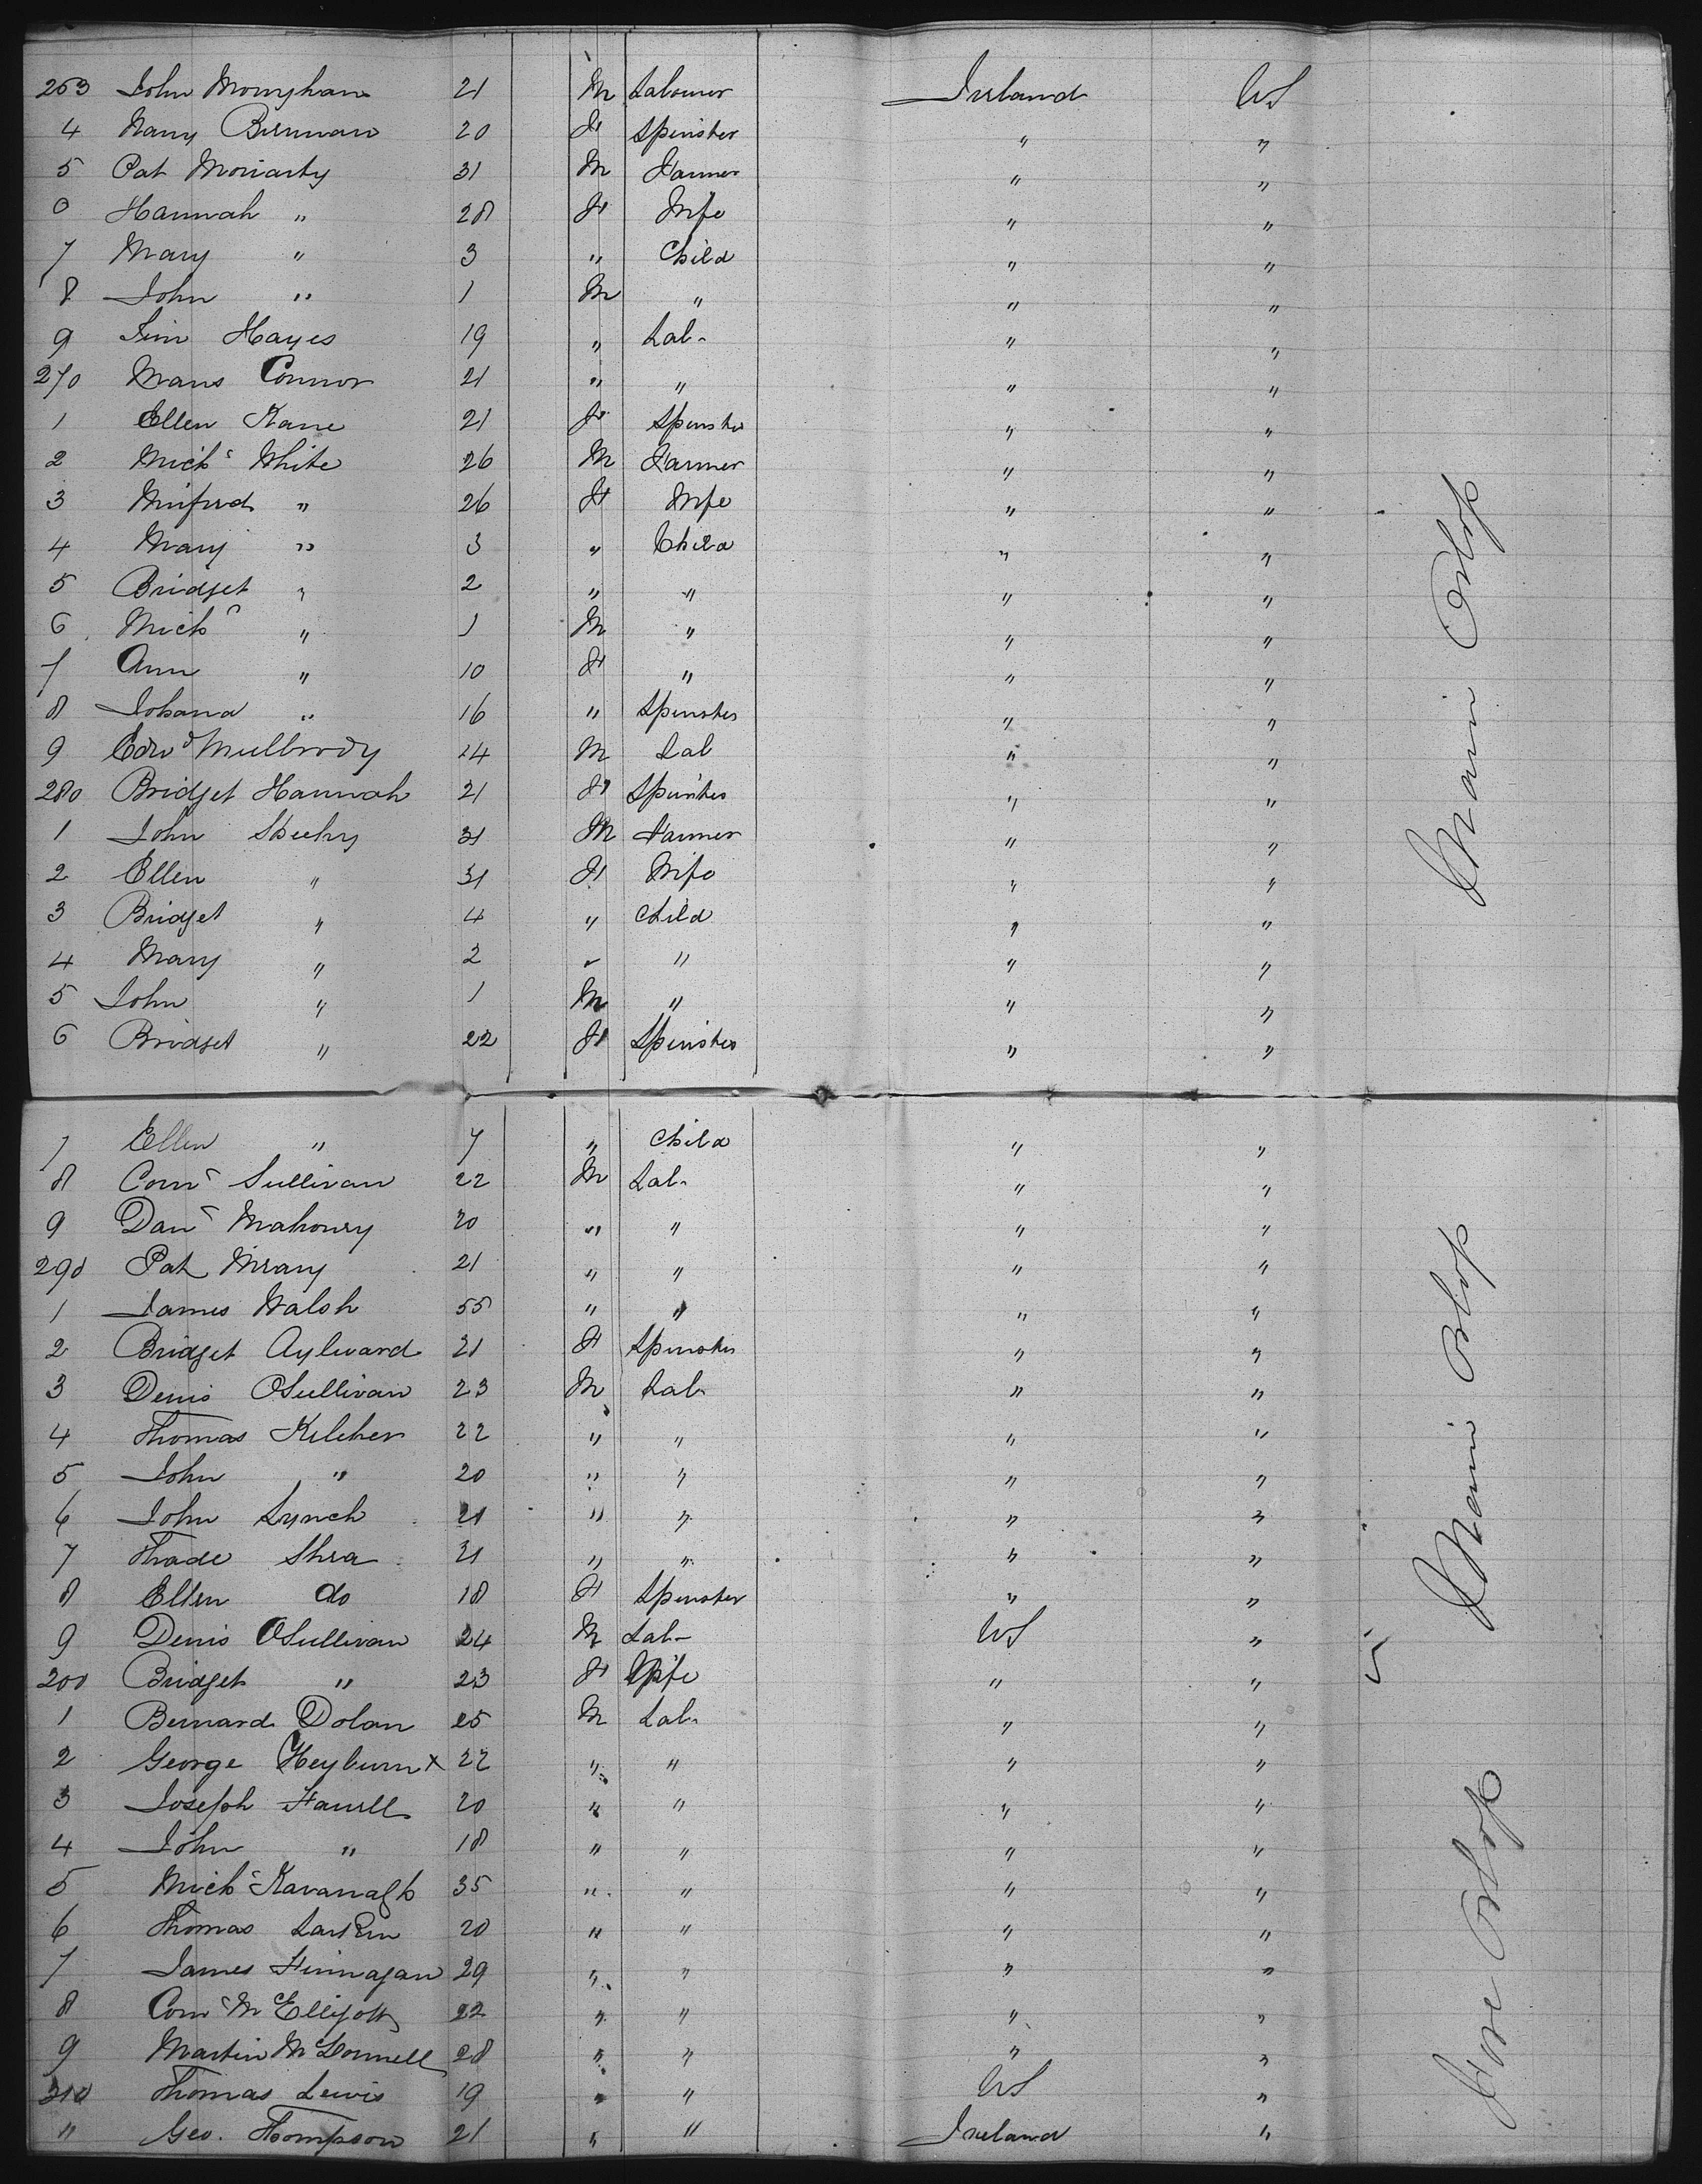 263 John Monyhan 21 M Labourer Ireland US
4 Nany Birnnan 20 F Spinster " "
5 Pat Moriarty 31 M Farmer " "
6 Hannah " 28 F Wife " "
7 Mary " 3 " Child " "
8 John " 1 M " " "
9 Jim Hayes 19 " Lab- " "
270 Mans Connor 21 " " " "
1 Ellen Kane 21 F Spinster " "
2 Michl White 26 M Farmer " "
3 Winfred " 26 F Wife " "
4 Mary " 3 " Child " "
5 Bridget " 2 " " " "
6 Michl " 1 M " " "
7 Ann " 10 F " " "
8 Johana " 16 " Spinster " "
9 Edwd Mullrody 24 M Lab " "
280 Bridget Hannah 21 F Spinster " "
1 John Skeehy 31 M Farmer " "
2 Ellen " 31 F Wife " "
3 Bridget " 4 " Child " "
4 Mary " 2 " " " "
5 John " 1 M " " "
6 Bridget " 22 F Spinster " "
Main Orlop
7 Ellen " 7 " Child " "
8 Corns Sullivan 22 M Lab- " "
9 Danl Mahoney 20 " " " "
290 Pat 21 " " " "
1 James Walsh 55 " " " "
2 Bridget Aylward 21 F Spinster " "
3 Denis OSullivan 23 M Lab- " "
4 Thomas Kilcher 22 " " " "
5 John " 20 " " " "
6 John Lynch 21 " " " "
7 Thade Shea 21 " " " "
8 Ellen do 18 F Spinster " "
9 Denis OSullivan 24 M Lab- US "
200 Bridget " 23 F Wife " "
Main Orlop
1 Bernard Dolan 25 M Lab- " "
2 George Heyburn x 22 " " " "
3 Joseph Farrell 20 " " " "
4 John " 18 " " " "
5 Michl Kavanagh 35 " " " "
6 Thomas Larkin 20 " " " "
7 James Finnagan 29 " " " "
8 Corns McEllyott 22 " " " "
9 Martin McDonnell 28 " " " "
310 Thomas Lewis 19 " " US "
" Geo. Thompson 21 " " Ireland "
Fore Orlop